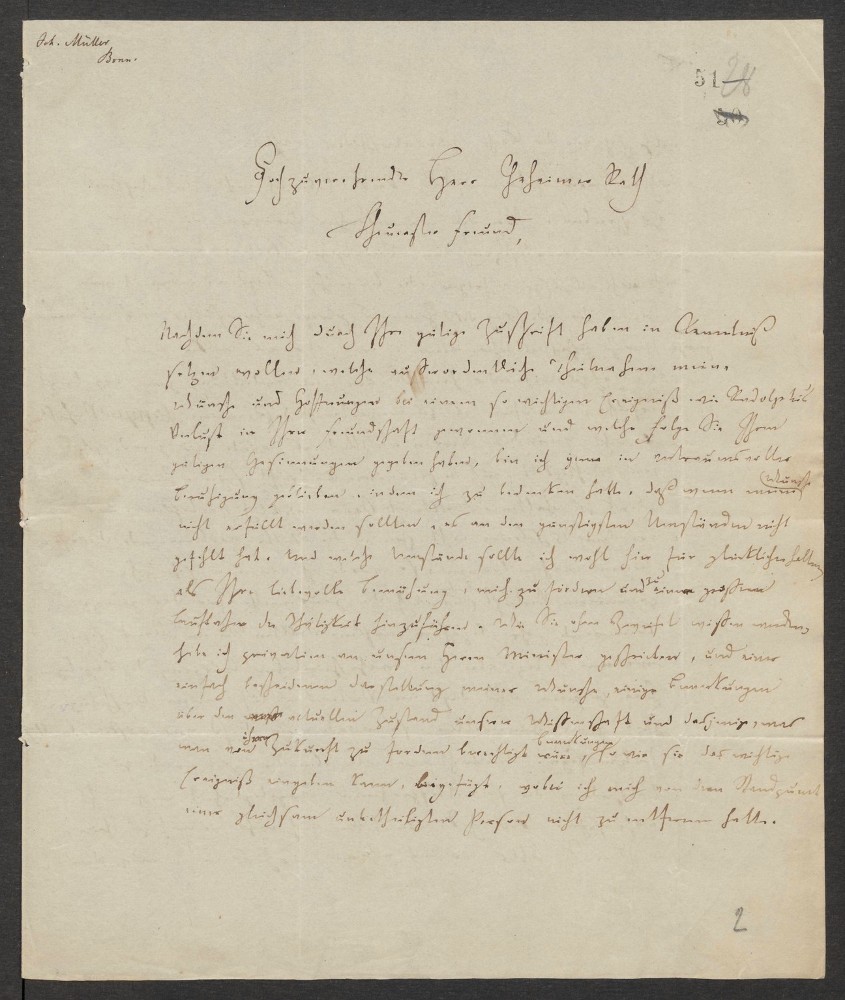 Joh. Müller
Bonn.
51 28
Hochzuverehrender Herr Geheimer Rath
Theurester Freund,
Nachdem Sie mich durch Ihre gütige Zuschrift haben in Kenntniß
setzen wollen, welche ausserordentliche Theilnahme meine
Wünsche und Hoffnungen bei einem so wichtigen Ereigniß wie Rudolphis
Verlust in Ihrer Freundschaft gewonnen und welche Folge Sie Ihren
gütigen Gesinnungen gegeben haben, bin ich ganz in vertrauensvoller
Beruhigung geblieben, indem ich zu bedenken hatte, daß wenn meine Wünsche
nicht erfüllt werden sollten, es an den günstigsten Umständen nicht
gefehlt hat. Und welche Umstände sollte ich wohl hier für glücklicher halten,
als Ihre liebevolle Bemühung, mich zu fördern und zu einer grossen
Laufbahn der Thätigkeit hinzuführen. Wie Sie ohne Zweifel wissen werden,
habe ich privatim an unsern Herrn Minister geschrieben, und einer
einfach bescheidenen Darstellung meiner Wünsche, einige Bemerkungen
über den actuellen Zustand unserer Wissenschaft und dasjenige, was
man von ihrer Zukunft zu fordern berechtigt wäre, Bemerkungen so wie sie das wichtige
Ereigniß eingeben kann, beigefügt, wobei ich mich von dem Standpunct
einer gleichsam unbetheiligten Person nicht zu entfernen hatte.
2